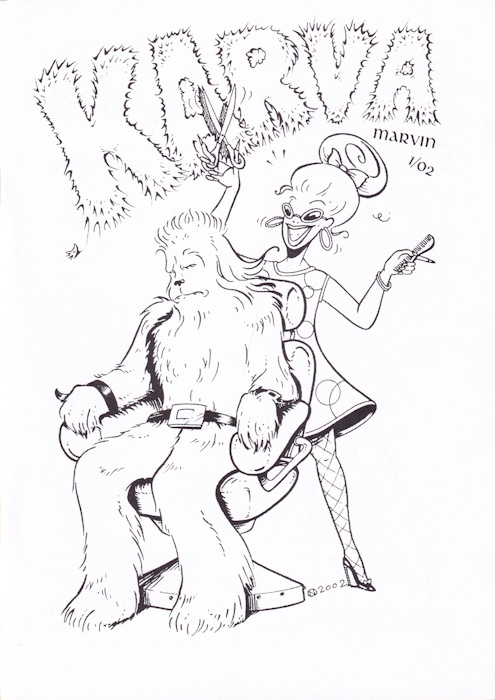 KARVA
MARVIN
1/02
© 2002